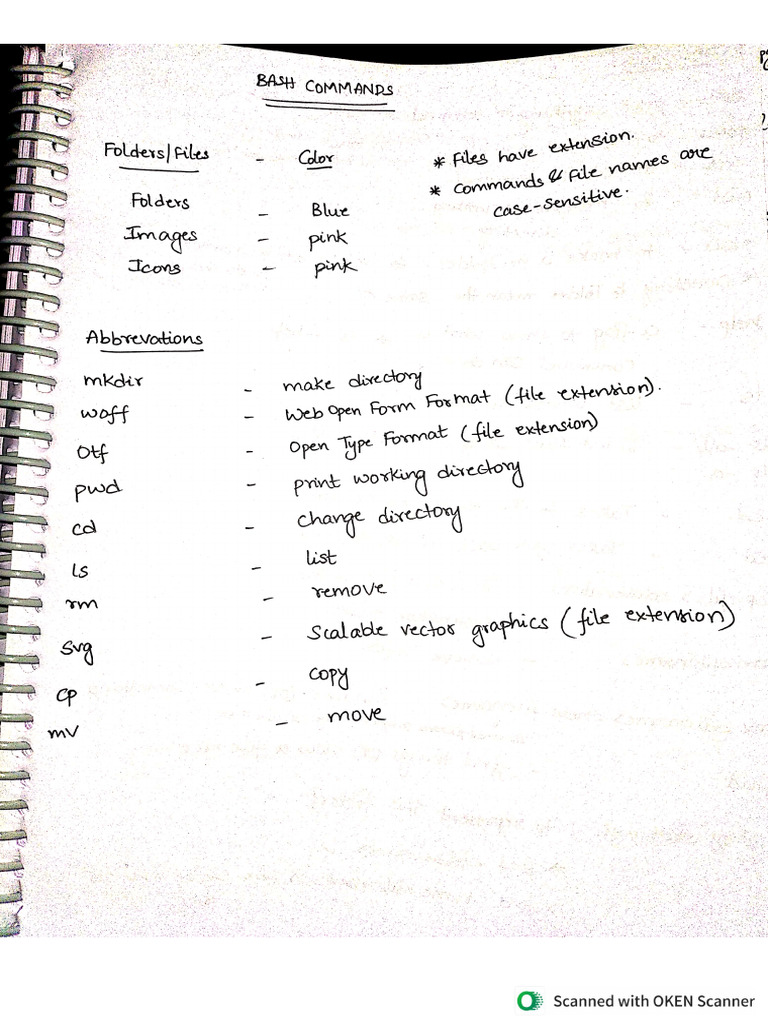 BASH COMMANDS
Folders/Files - Color
* Files have extension.
* Commands & File names are
case-sensitive.
Folders - Blue
Images - pink
Icons - pink
Abbrevations
mkdir - make directory
woff - Web Open Form Format (file extension).
Otf - Open Type Format (file extension)
pwd - print working directory
cd - change directory
ls - list
rm - remove
svg - Scalable vector graphics (file extension)
cp - copy
mv - move
Scanned with OKEN Scanner